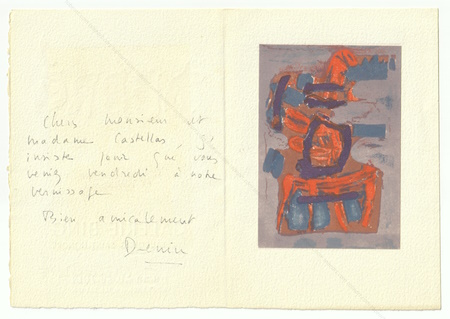 Chers monsieur et
madame Castellas, j'
insiste pour que vous
veniez vendredi à notre
vernissage
Bien amicalement